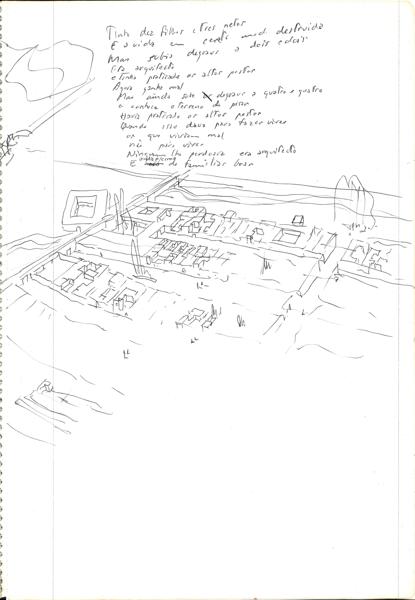 Tinha dez filhos e tres netos
E a vida em certa med. destruida
Mas subia degraus a dois e dois
Era arquitecto
e tinha praticado os altos postos
Agora ganha mal
Mas ainda sobe degraus a quatro e quatro
e conhece o terreno de
Havia praticado os altos postos
Quando isso dava para fazer viver
os que viviam mal
não para viver
Ninguem lhe perdoaria era arquitecto
E de familias boas